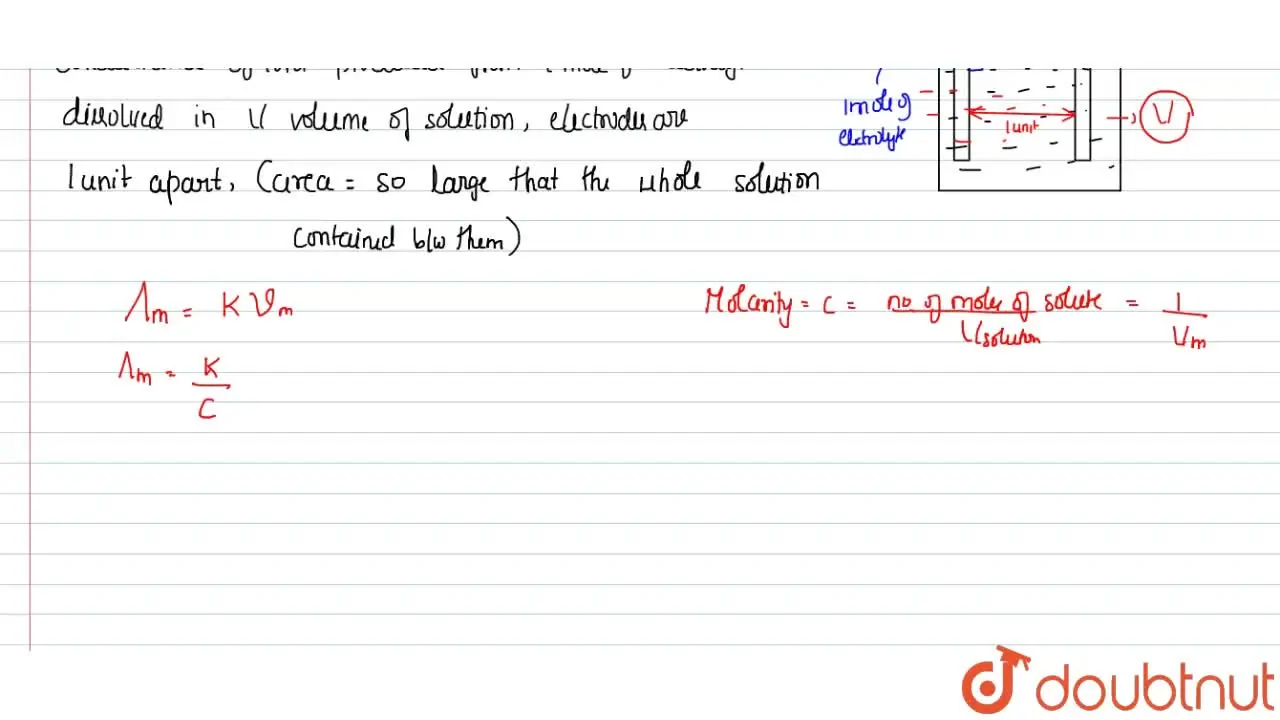 dissolved in V volume of solution, electrodes are
1 unit apart, (area = so large that the whole solution
contained b/w them)
1 mole of
electrolyte
1 unit
V
Λm = K Vm
Λm = K
C
Molarity = C = no of moles of solute = 1
Vsolution Vm
doubtnut